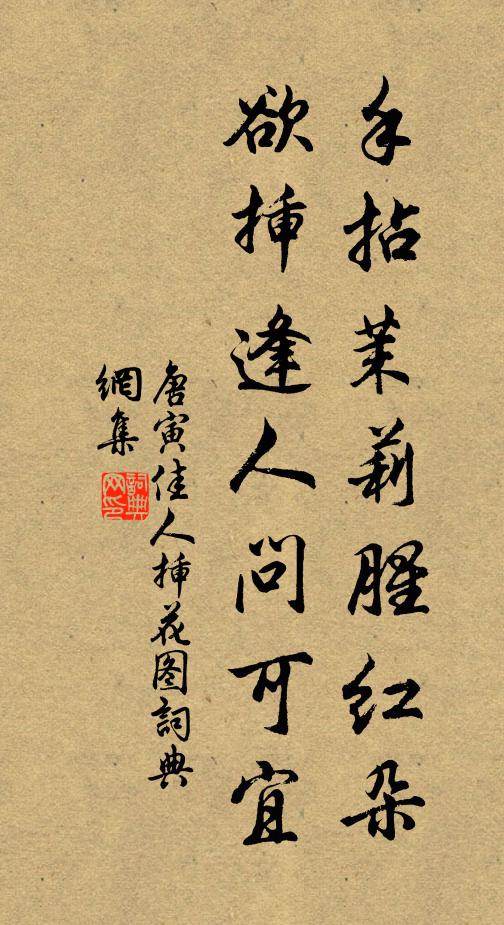 手拈茉莉腥红朵
欲插逢人问可宜
唐寅佳人插花图词典
网集
词典
网印